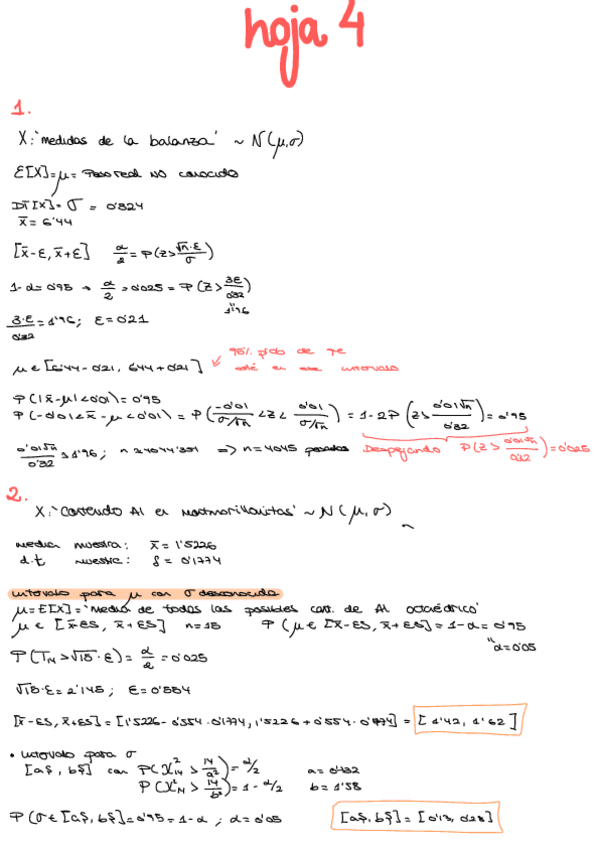 hoja 4
1.
X: 'medidas de la balanza' ~ N(μ,σ)
E[X]=μ= Peso real NO conocido
DT[X]= σ = 0'324
x̄ = 6'44
[x̄-ε, x̄+ε] α/2 = P(Z > √n·ε/σ)
1-α=0'95 → α/2 = 0'025 = P(Z > 3ε/0'32)
1'96
3·ε/0'32 = 1'96; ε=0'21
μ ∈ [6'44-0'21, 6'44+0'21] 95% prob de que
esté en ese intervalo
P(|x̄-μ|<0'01)=0'95
P(-0'01<x̄-μ<0'01) = P(-0'01/σ/√n <Z< 0'01/σ/√n) = 1-2P(Z> 0'01√n/0'32) = 0'95
0'01√n/0'32 ≥ 1'96; n ≥ 4044'391 => n=4045 pesadas Despejando P(Z > 0'01√n/0'32)=0'025
2.
X: 'Contenido Al en montmorillonitas' ~ N(μ,σ)
media muestra: x̄ = 1'5226
d.t muestra: s = 0'1774
intervalo para μ con σ desconocida
μ=E[X]= 'Media de todas las posibles cant. de Al octaédrico'
μ ∈ [x̄-εS, x̄+εS] n=15 P(μ ∈ [x̄-εS, x̄+εS]=1-α=0'95
α=0'05
P(T14>√15·ε)= α/2 =0'025
√15·ε=2'145; ε=0'554
[x̄-εS, x̄+εS]=[1'5226-0'554·0'1774, 1'5226+0'554·0'1774] = [1'42, 1'62]
• intervalo para σ
[aS, bS] con P(χ²14 > 14/a²)=α/2 a=0'732
P(χ²14 > 14/b²)=1-α/2 b=1'58
P(σ∈[aS, bS]=0'95=1-α; α=0'05 [aS, bS] = [0'13, 0'28]